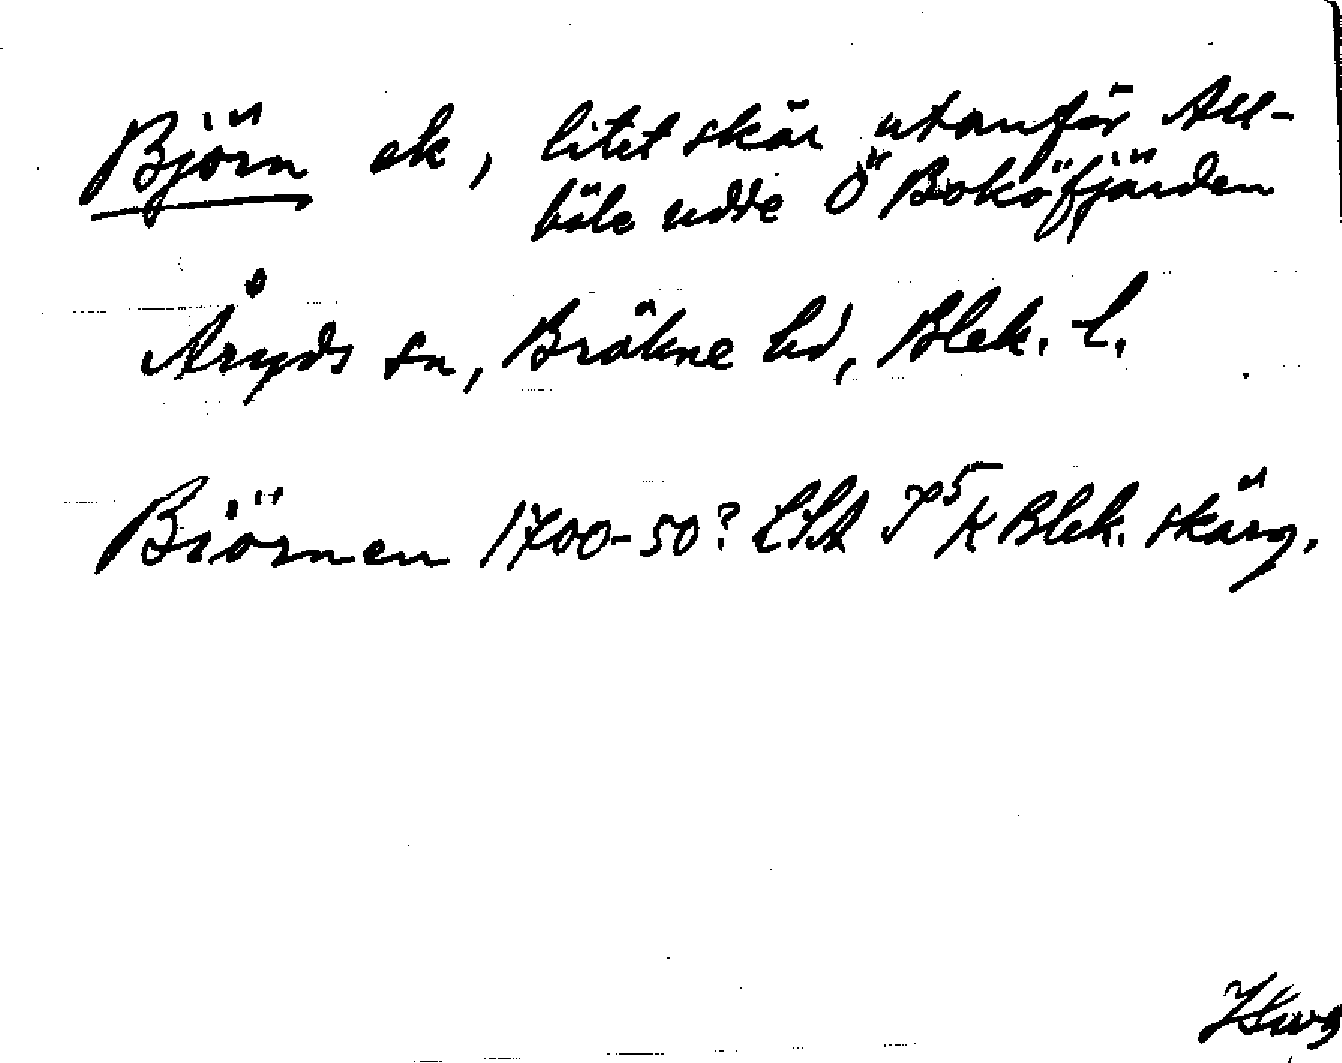 Björn ek, litet skär utanför All-
böle udde Ö Boköfjärden
Åryds sn, Bräkne hd, Blek. l.
Biörnen 1700-50? LSA K Blek. skärg.